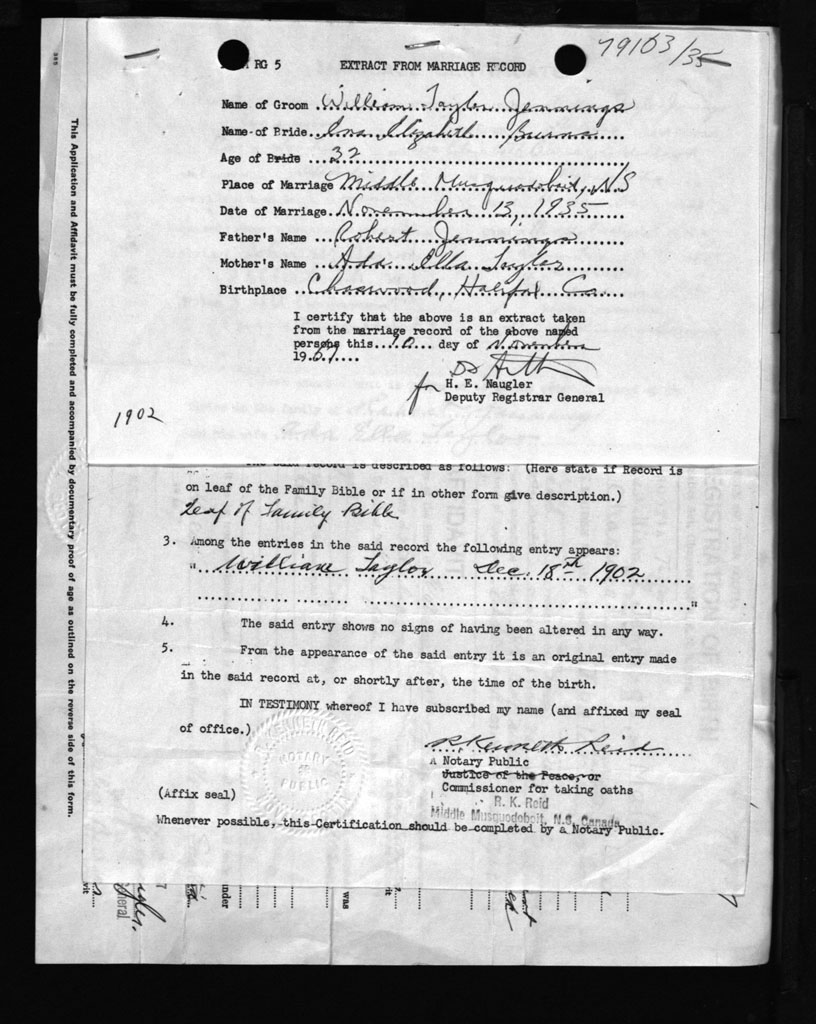 79103/35
RG 5 EXTRACT FROM MARRIAGE RECORD
Name of Groom .. William Taylor Jennings
Name of Bride .. Elizabeth Burns
Age of Bride .. 32
Place of Marriage Middle Musquodoboit, N.S
Date of Marriage November 13, 1935
Father's Name .. Robert Jennings
Mother's Name .. Ada Ella Taylor
Birthplace .. Chaswood, Halifax Co.
I certify that the above is an extract taken
from the marriage record of the above named
persons this 10 day of November
1967
for H. E. Naugler
Deputy Registrar General
1902
The said record is described as follows: (Here state if Record is
on leaf of the Family Bible or if in other form give description.)
Leaf of Family Bible
3. Among the entries in the said record the following entry appears:
" William Taylor Dec. 18th 1902
"
4. The said entry shows no signs of having been altered in any way.
5. From the appearance of the said entry it is an original entry made
in the said record at, or shortly after, the time of the birth.
IN TESTIMONY whereof I have subscribed my name (and affixed my seal
of office.)
R Kenneth Reid
A Notary Public
Justice of the Peace, or
Commissioner for taking oaths
(Affix seal)
R. K. Reid
Middle Musquodoboit, N.S. Canada
Whenever possible, this Certification should be completed by a Notary Public.
R. KENNETH REID
NOTARY
PUBLIC
This Application and Affidavit must be fully completed and accompanied by documentary proof of age as outlined on the reverse side of this form.
under
was